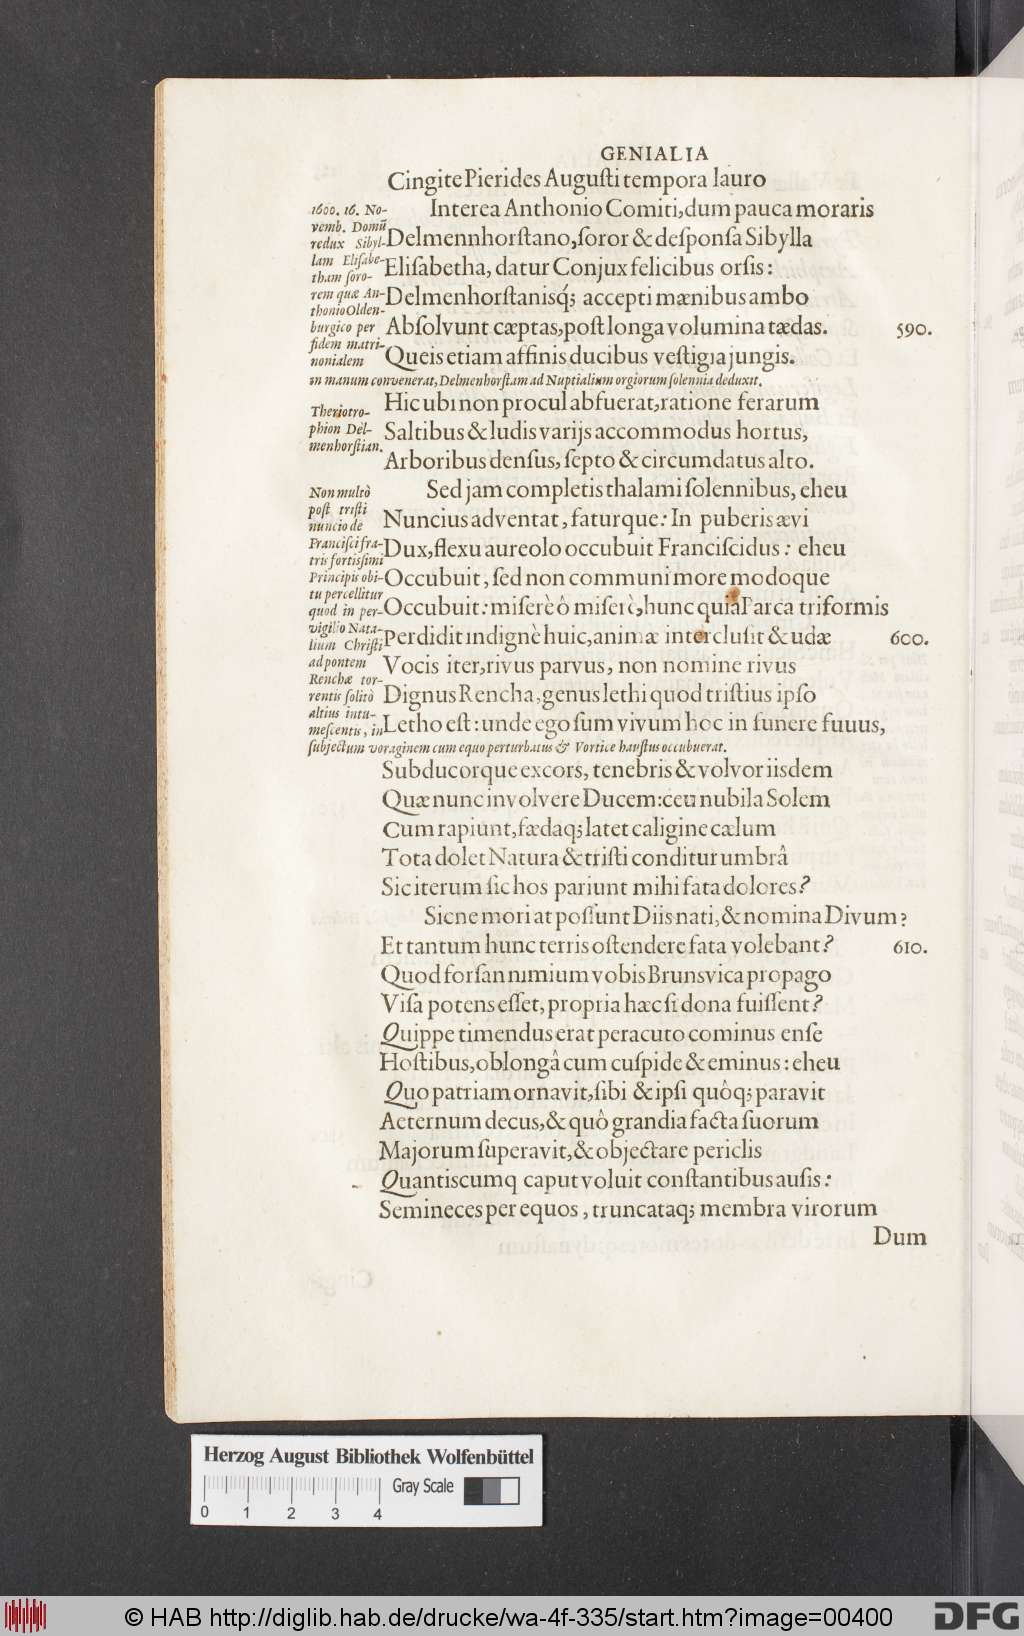 GENIALIA
Cingite Pierides Augusti tempora lauro
Interea Anthonio Comiti, dum pauca moraris
Delmennhorstano, soror & desponsa Sibylla
Elisabetha, datur Conjux felicibus orsis:
Delmenhorstanisq́; accepti mænibus ambo
Absolvunt cæptas, post longa volumina tædas. 590.
Queis etiam affinis ducibus vestigia jungis.
1600. 16. No-
vemb. Domũ
redux Sibyl-
lam Elisabe-
tham soro-
rem quæ An-
thonio Olden-
burgico per
fidem matri-
nonialem
in manum convenerat, Delmenhorstam ad Nuptialium orgiorum solennia deduxit.
Hic ubi non procul abfuerat, ratione ferarum
Saltibus & ludis varijs accommodus hortus,
Arboribus densus, septo & circumdatus alto.
Theriotro-
phion Del-
menhorstian.
Sed jam completis thalami solennibus, eheu
Nuncius adventat, faturque: In puberis ævi
Dux, flexu aureolo occubuit Franciscidus: eheu
Occubuit, sed non communi more modoque
Occubuit: miserè ô miserè, hunc quia Parca triformis
Perdidit indignè huic, animæ interclusit & udæ 600.
Vocis iter, rivus parvus, non nomine rivus
Dignus Rencha, genus lethi quod tristius ipso
Letho est: unde ego sum vivum hoc in funere fuuus,
Non multò
post tristi
nuncio de
Francisci fra-
tris fortissimi
Principis obi-
tu percellitur
quod in per-
vigilio Nata-
lium Christi
ad pontem
Renchæ tor-
rentis solitò
altius intu-
mescentis, in
subjectum voraginem cum equo perturbatus & Vortice haustus occubuerat.
Subducorque excors, tenebris & volvor iisdem
Quæ nunc involvere Ducem: ceu nubila Solem
Cum rapiunt, fædaq; latet caligine cælum
Tota dolet Natura & tristi conditur umbrâ
Sic iterum sic hos pariunt mihi fata dolores?
Sicne mori at possunt Diis nati, & nomina Divum?
Et tantum hunc terris ostendere fata volebant? 610.
Quod forsan nimium vobis Brunsvica propago
Visa potens esset, propria hæc si dona fuissent?
Quippe timendus erat peracuto cominus ense
Hostibus, oblongâ cum cuspide & eminus: eheu
Quo patriam ornavit, sibi & ipsi quôq; paravit
Aeternum decus, & quô grandia facta suorum
Majorum superavit, & objectare periclis
Quantiscumq caput voluit constantibus ausis:
Semineces per equos, truncataq; membra virorum
Dum
Herzog August Bibliothek Wolfenbüttel
Gray Scale
0 1 2 3 4
© HAB http://diglib.hab.de/drucke/wa-4f-335/start.htm?image=00400
DFG